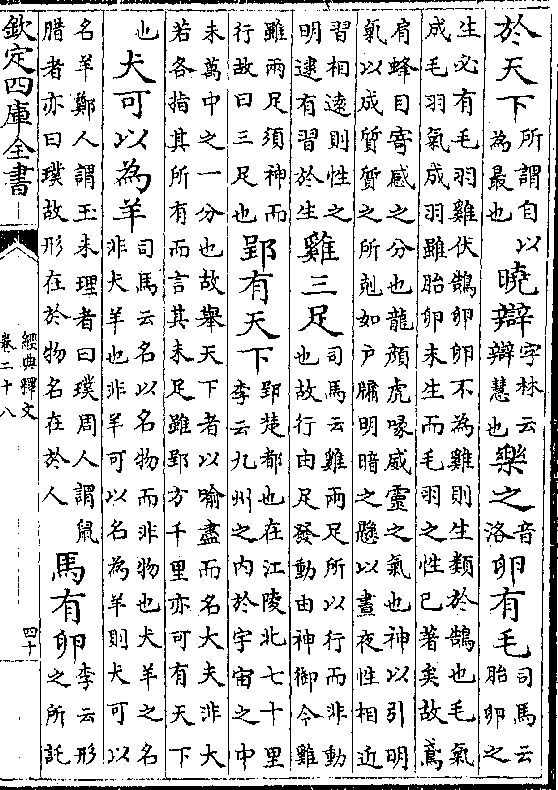 於天下所謂自以為最也曉辯字林云辯慧也樂之音洛卵有毛司馬云胎卵之
生必有毛羽雞伏鵠卵卵不為雞則生類於鵠也毛氣
成毛羽氣成羽雖胎卵未生而毛羽之性已著矣故鳶
肩蜂目寄感之分也龍顏虎喙威靈之氣也神以引明
氣以成質質之所剋如戶牖明暗之懸以晝夜性相近
習相逺則性之明逮有習於生雞三足司馬云雞兩足所以行而非動也故行由足發動由神御今雞
雖兩足須神而行故曰三足也郢有天下郢楚都也在江陵北七十里李云九州之內於宇宙之中
未萬中之一分也故舉天下者以喻盡而名大夫非大
若各指其所有而言其未足雖郢方千里亦可有天下
也犬可以為羊司馬云名以名物而非物也犬羊之名非犬羊也非羊可以名為羊則犬可以
名羊鄭人謂玉未理者曰璞周人謂鼠腊者亦曰璞故形在於物名在於人馬有卵李云形之所託
欽定四庫全書
經典釋文
卷二十八
四十